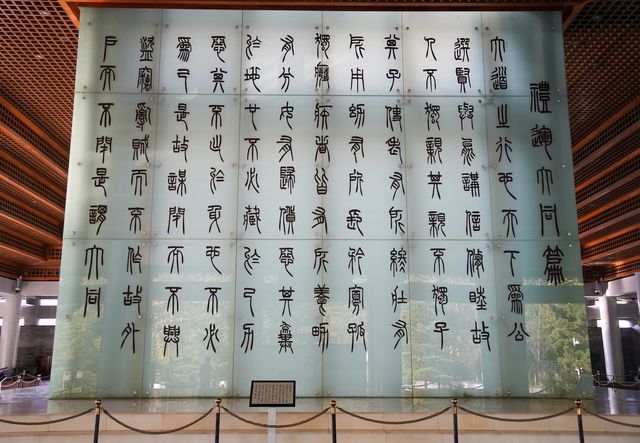 禮運大同篇
大道之行也天下為公
選賢與能講信修睦故
人不獨親其親不獨子
其子使老有所終壯有
所用幼有所長矜寡孤
獨廢疾者皆有所養男
有分女有歸貨惡其棄
於地也不必藏於己力
惡其不出於身也不必
為己是故謀閉而不興
盜竊亂賊而不作故外
戶而不閉是謂大同